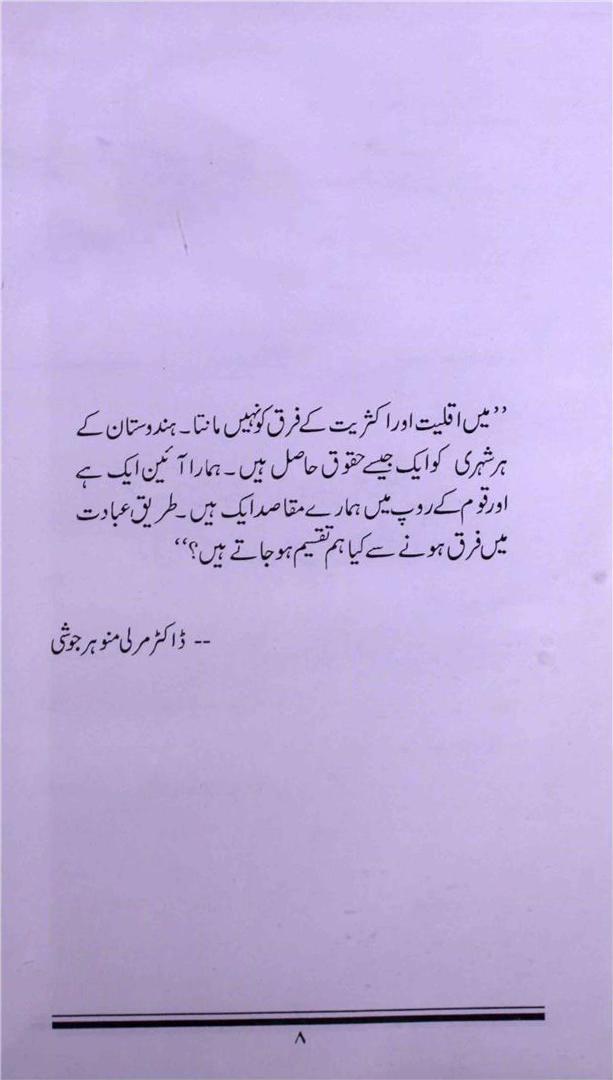 ’’میں اقلیت اور اکثریت کے فرق کو نہیں مانتا۔ ہندوستان کے
ہر شہری کو ایک جیسے حقوق حاصل ہیں۔ ہمارا آئین ایک ہے
اور قوم کے روپ میں ہمارے مقاصد ایک ہیں۔ طریق عبادت
میں فرق ہونے سے کیا ہم تقسیم ہو جاتے ہیں؟‘‘
-- ڈاکٹر مرلی منوہر جوشی
۸